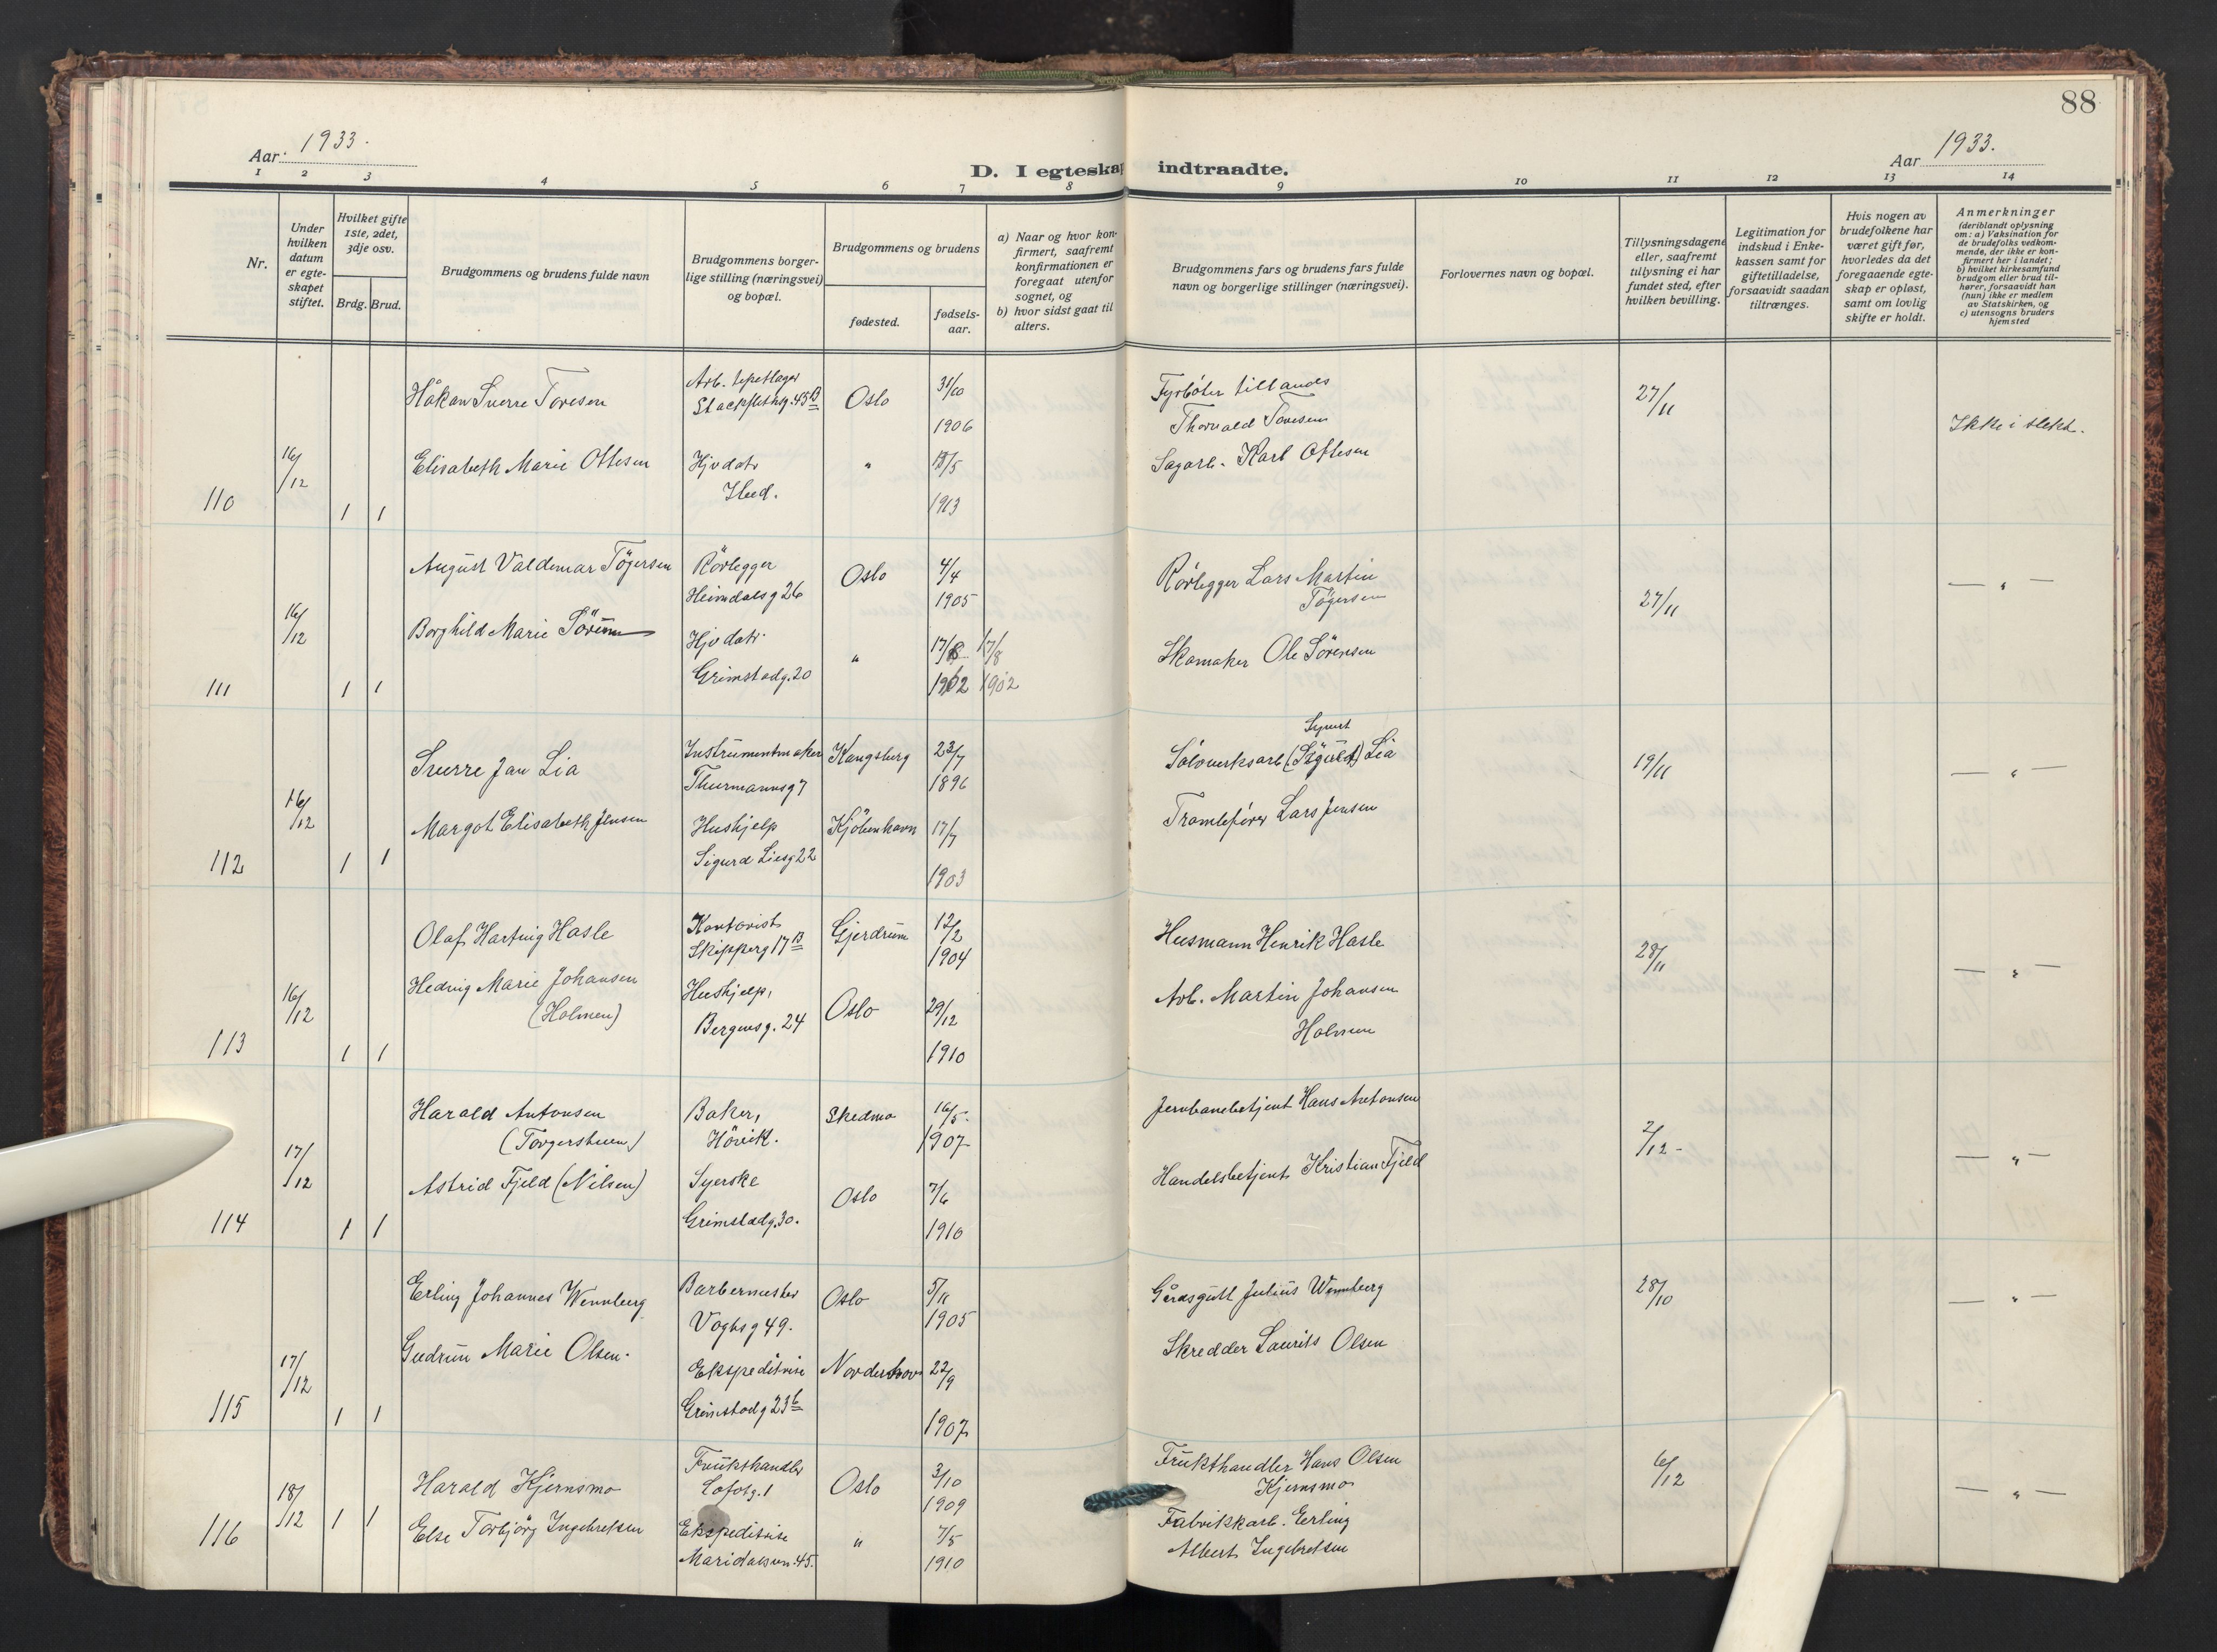 88
Aar 1933.
Aar 1933.
D. I egteska
indtraadte.
1 2 3 4 5 6 7 8 9 10 11 12 13 14
Nr.
Under
hvilken
datum
er egte-
skapet
stiftet.
Hvilket gifte
1ste, 2det,
3dje osv.
Brdg. Brud.
Brudgommens og brudens fulde navn
Brudgommens borger-
lige stilling (næringsvei)
og bopæl.
Brudgommens og brudens
fødested.
fødsels-
aar.
a) Naar og hvor kon-
firmert, saafremt
konfirmationen er
foregaat utenfor
sognet, og
b) hvor sidst gaat til
alters.
Brudgommens fars og brudens fars fulde
navn og borgerlige stillinger (næringsvei).
Forlovernes navn og bopæl.
Tillysningsdagene
eller, saafremt
tillysning ei har
fundet sted, efter
hvilken bevilling.
Legitimation for
indskud i Enke-
kassen samt for
giftetilladelse,
forsaavidt saadan
tiltrænges.
Hvis nogen av
brudefolkene har
været gift før,
hvorledes da det
foregaaende egte-
skap er opløst,
samt om lovlig
skifte er holdt.
Anmerkninger
(deriblandt oplysning
om: a) Vaksination for
de brudefolks vedkom-
mende, der ikke er kon-
firmert her i landet;
b) hvilket kirkesamfund
brudgom eller brud til-
hører, forsaavidt han
(hun) ikke er medlem
av Statskirken, og
c) utensogns bruders
hjemsted
110 16/12 1 1
Håkon Sverre Toresen
Arb. tapetlager
Stockflethsg. 45 B
Oslo
31/10
1906
Fyrbøter tillands
Thorvald Toresen
27/11
Ikke i slekt.
Elisabeth Marie Ottesen
Hjv datr
Ibid.
"
13/5
1913
Sagarb. Karl Ottesen
111 16/12 1 1
August Valdemar Tögersen
Rörlegger
Heimdalsg 26
Oslo
4/4
1905
Rörlegger Lars Martin
Tögersen
27/11
— " —
Borghild Marie Sörensen
Hjv datr.
Grimstadg. 20
"
17/8 17/8
1902 1902
Skomaker Ole Sörensen
112 16/12 1 1
Sverre Jan Lia
Instrumentmaker
Thurmannsg 7
Kongsberg
23/7
1896
Syvert
Sølvverksarb (Sigurd) Lia
19/11
— " —
Margot Elisabeth Jensen
Hushjelp
Sigurd Liesg 22
Kjöbenhavn
17/7
1903
Tramlefører Lars Jensen
113 16/12 1 1
Olaf Hartvig Hasle
Kontorist
Skipperg 17 B
Gjerdrum
12/2
1904
Husmann Henrik Hasle
28/11
— " —
Hedvig Marie Johansen
(Holmen)
Hushjelp,
Bergensg. 24
Oslo
29/12
1910
Arb. Martin Johansen
Holmen
114 17/12 1 1
Harald Antonsen
(Torgersheim)
Baker,
Hövik.
Skedmo
16/5
1907
Jernbanebetjent Hans Antonsen
2/12
— " —
Astrid Fjeld (Nilsen)
Syerske
Grimstadg. 30.
Oslo
7/6
1910
Handelsbetjent Kristian Fjeld
115 17/12 1 1
Erling Johannes Wennberg
Barbermester
Vogtsg 49.
Oslo
5/11
1905
Gårdsgutt Julius Wennberg
28/10
— " —
Gudrun Marie Olsen.
Ekspeditrise
Grimstadg 23 b
Norderhov
22/9
1907
Skredder Laurits Olsen
116 18/12 1 1
Harald Kjernsmo
Frukthandler
Lofotg. 1
Oslo
3/10
1909
Frukthandler Hans Olsen
Kjernsmo
6/12
— " —
Else Torbjörg Ingebretsen
Ekspeditrise
Maridalsvn. 45.
"
7/5
1910
Fabrikkarb. Erling
Albert Ingebretsen